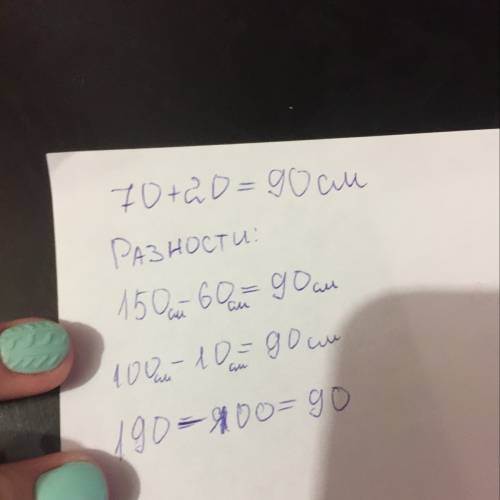 70+20=90см
Разности:
150см-60см=90см
100см-10см=90см
190-100=90